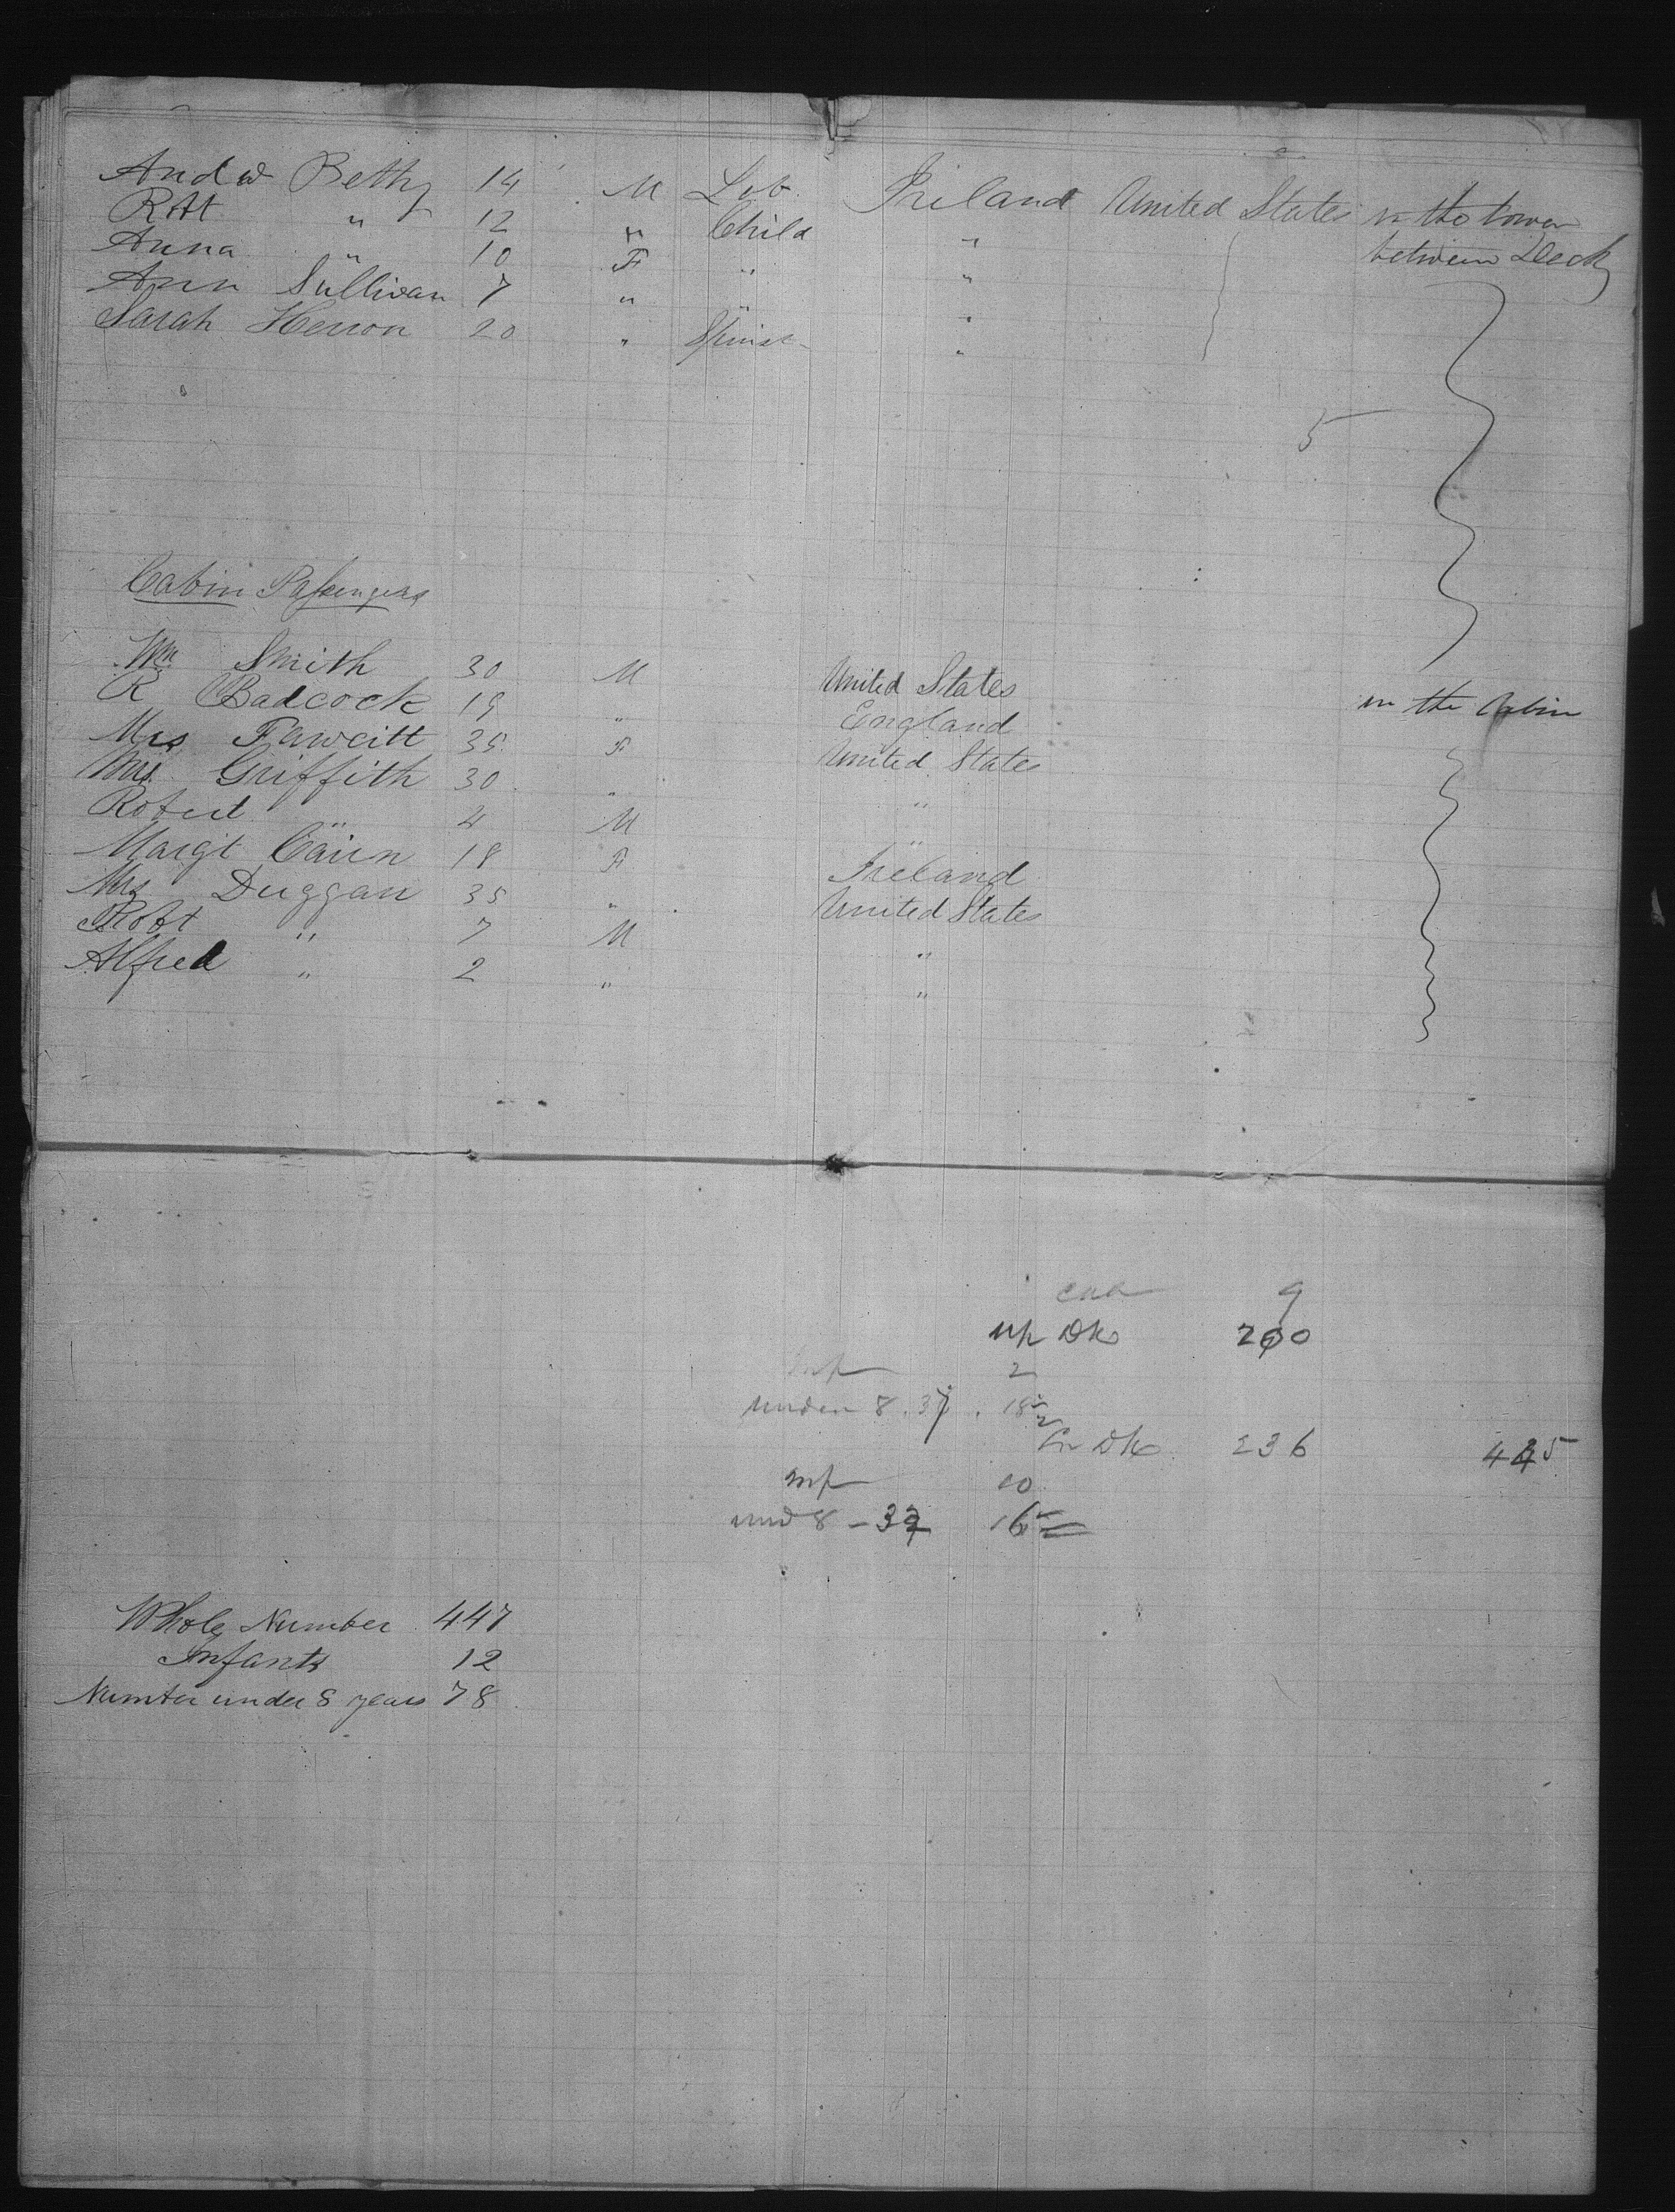 Andw Betty 14 M Lab. Ireland United States in the lower
Robt " 12 " Child " between Deck
Anna " 10 F " "
Ann Sullivan 7 " " "
Sarah Herron 20 " Spinst "
5
Cabin Passengers
Wm Smith 30 M United States
R Badcock 19 " England in the Cabin
Mrs Fawcitt 35 F United States
Mrs Griffith 30 " "
Robert " 4 M "
Margt Cairn 18 F Ireland
Mrs Duggan 35 " United States
Robt " 7 M "
Alfred " 2 " "
cab 9
up Dks 200
Inf 2
under 8 . 37 . 18½
Lr Dk 236 445
Inf 10
und 8 - 32 16
Whole Number 447
Infants 12
Number under 8 years 78